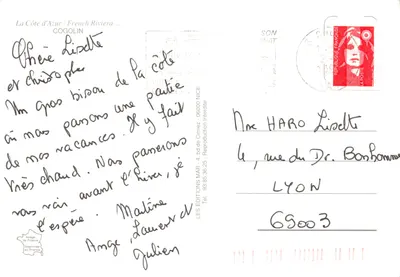 La Côte d'Azur - French Riviera...
COGOLIN
Chère Lisette
et christophe
Un gros bisou de la côte
où nous passons une partie
de nos vacances. Il y fait
très chaud. Nous passerons
vous voir avant l'hiver, je
l'espère. Martine
Ange, Laurent et
Julien
LES EDITIONS MAR
Mme HARO Lisette
4, rue du Dr. Bonhomme
LYON
69003